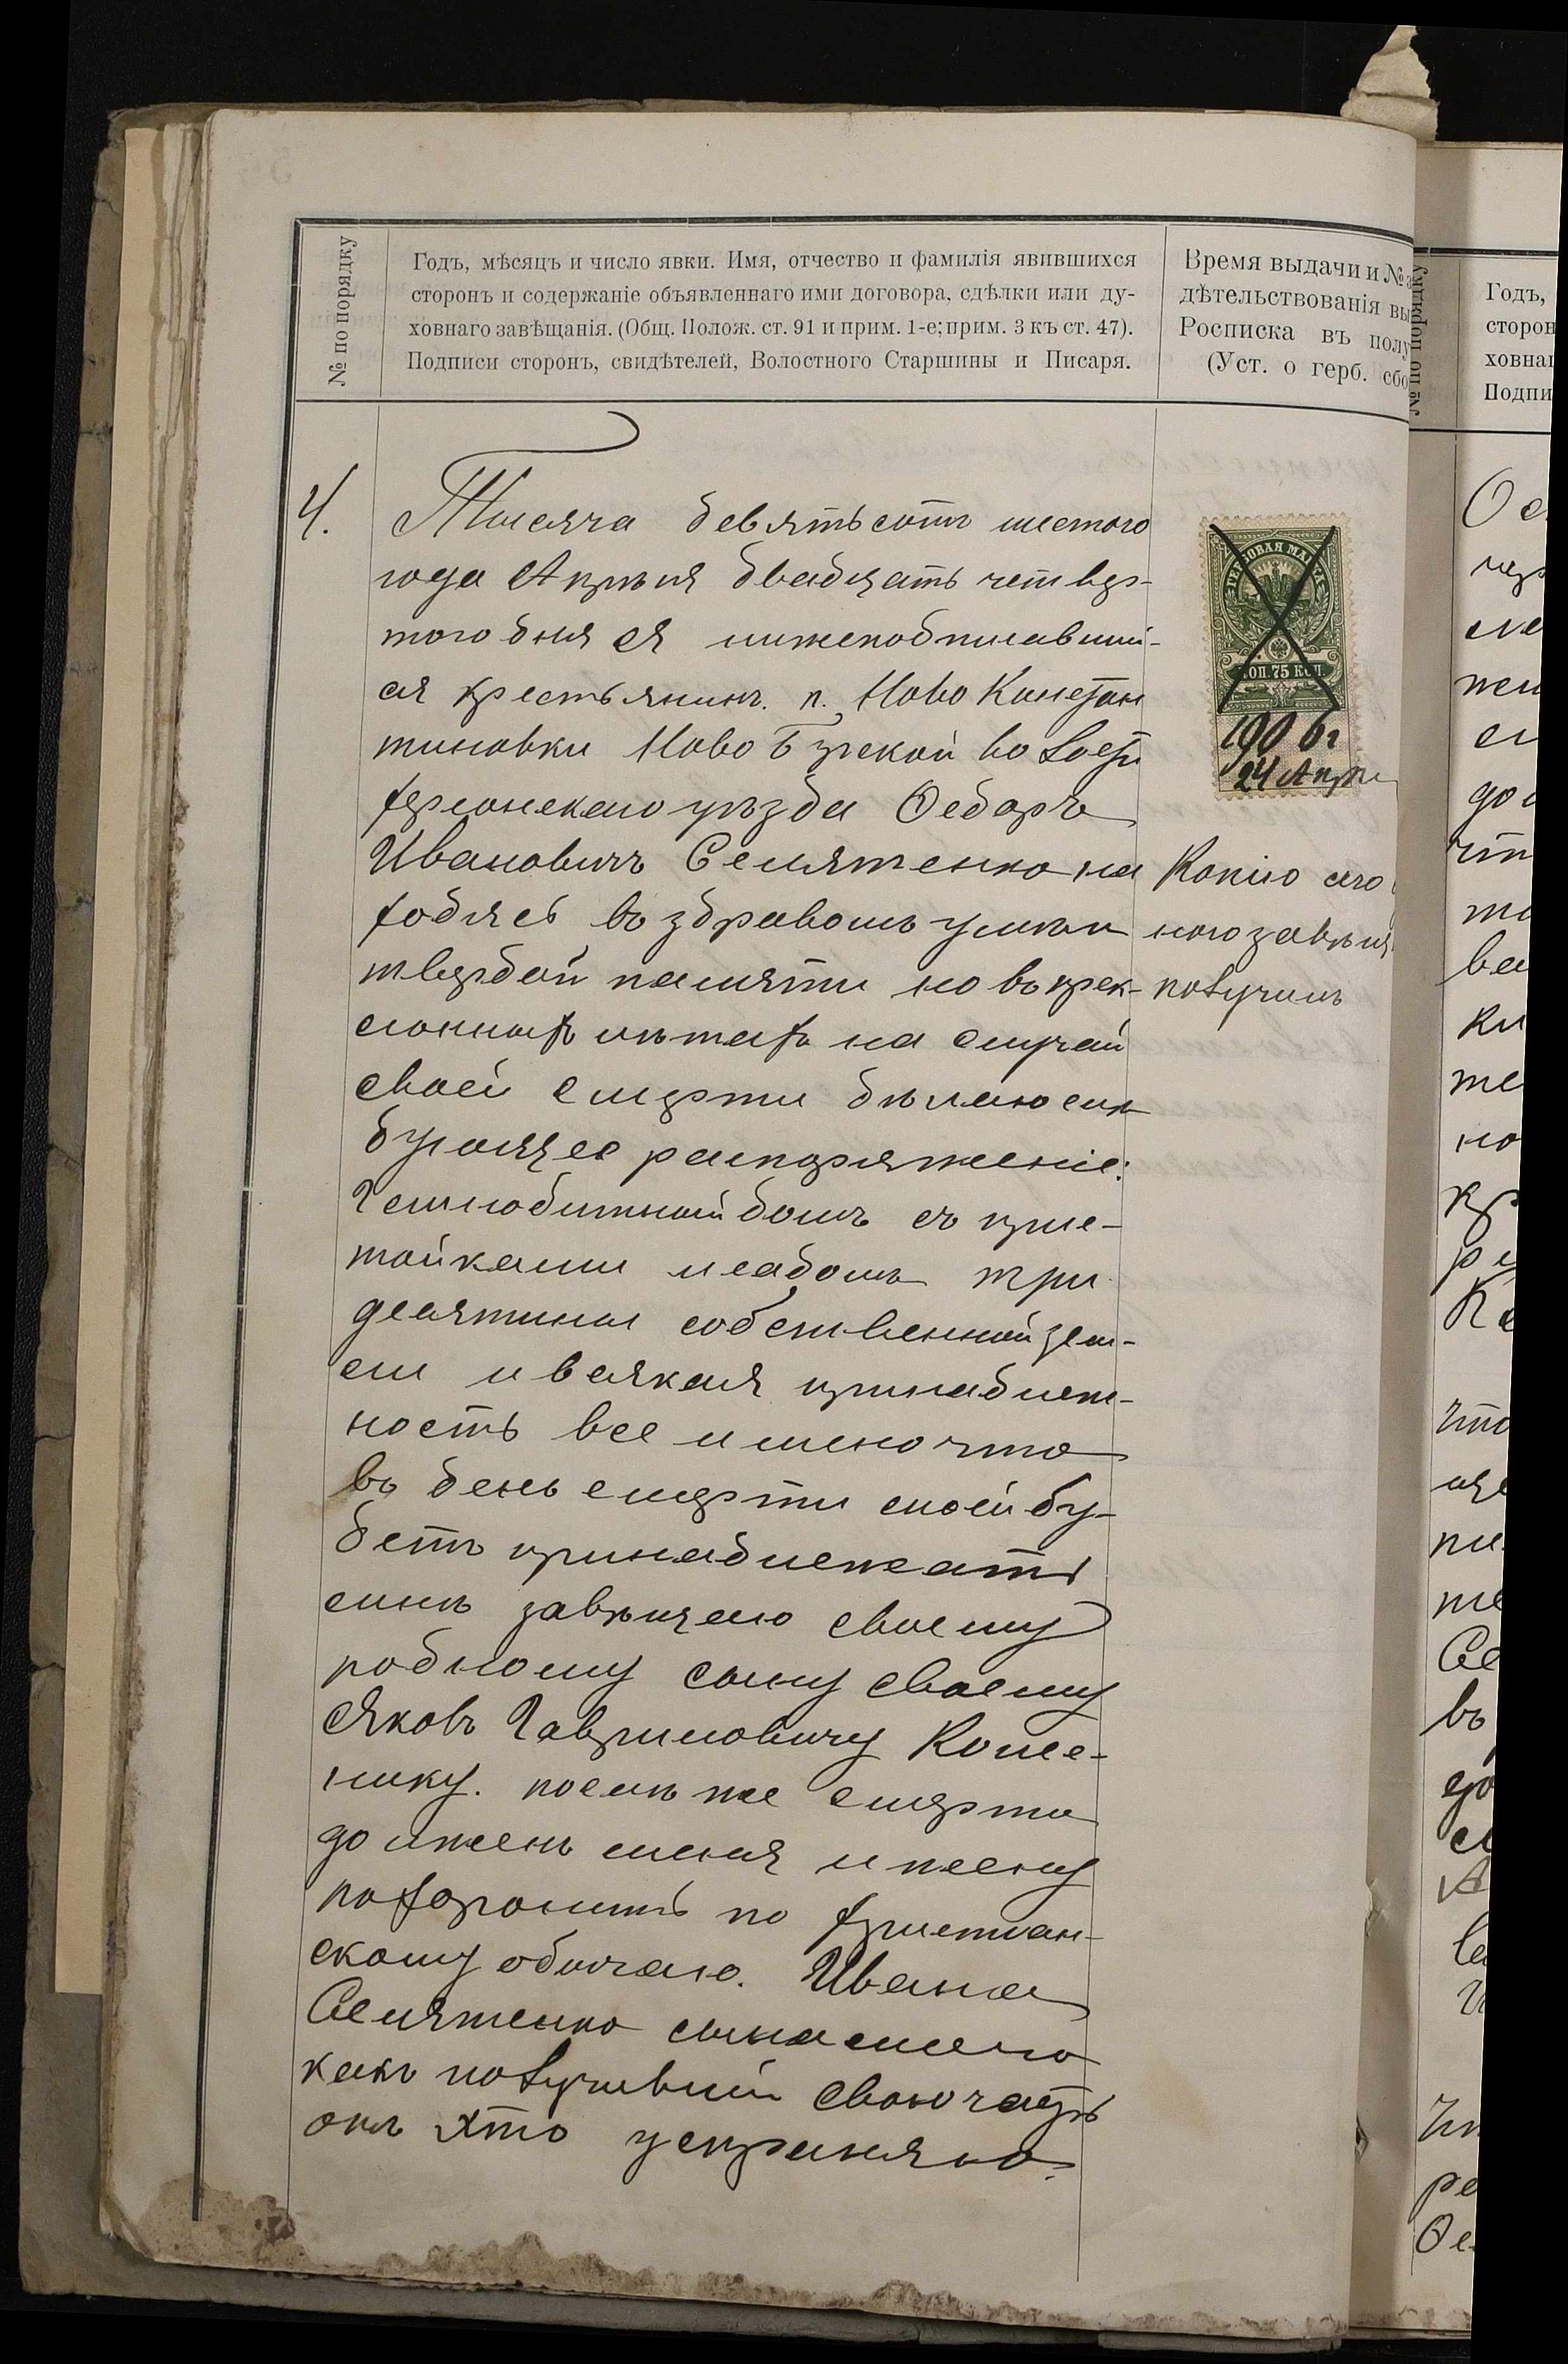 № по порядку
Годъ, мѣсяцъ и число явки. Имя, отчество и фамилія явившихся
сторонъ и содержаніе объявленнаго ими договора, сдѣлки или ду-
ховнаго завѣщанія. (Общ. Полож. ст. 91 и прим. 1-е; прим. 3 къ ст. 47).
Подписи сторонъ, свидѣтелей, Волостного Старшины и Писаря.
Время выдачи и №
дѣтельствованія вы
Росписка въ полу
(Уст. о герб. сбо
4.
Тысяча девятьсотъ шестого
года Апрѣля двадцать четвер-
того дня я нижеподписавший-
ся крестьянинъ п. Ново Констан
тиновки Ново Бугской волости
херсонскаго уѣзда Ѳедоръ
Ивановичъ Семятенко на
ходясь въ здравомъ умѣ и
твердой памяти но въ прек-
лонныхъ лѣтахъ на случай
своей смерти дѣлаю слѣ
дующее распоряженіе:
домъ съ прис-
тойками и садомъ три
десятины собственной зем-
ли и всякая принадлеж-
ность все именно что
въ день смерти моей бу-
детъ принадлежать
мнѣ завѣщаю своему
родному сыну своему
Яковъ Гавриловичу Коше-
нику. послѣ же смерти
долженъ меня и жену
похоронить по христиан-
скому обычаю. Ивана
Семятенко сына моего
какъ получивший свою часть
онъ это устраняю.
ГЕРБОВАЯ МАРКА
КОП. 75 КОП.
1906 г
24 Апрѣ
Копію сего
наго завѣщ
получилъ
№ по порядку
Годъ,
сторон
ховна
Подпи